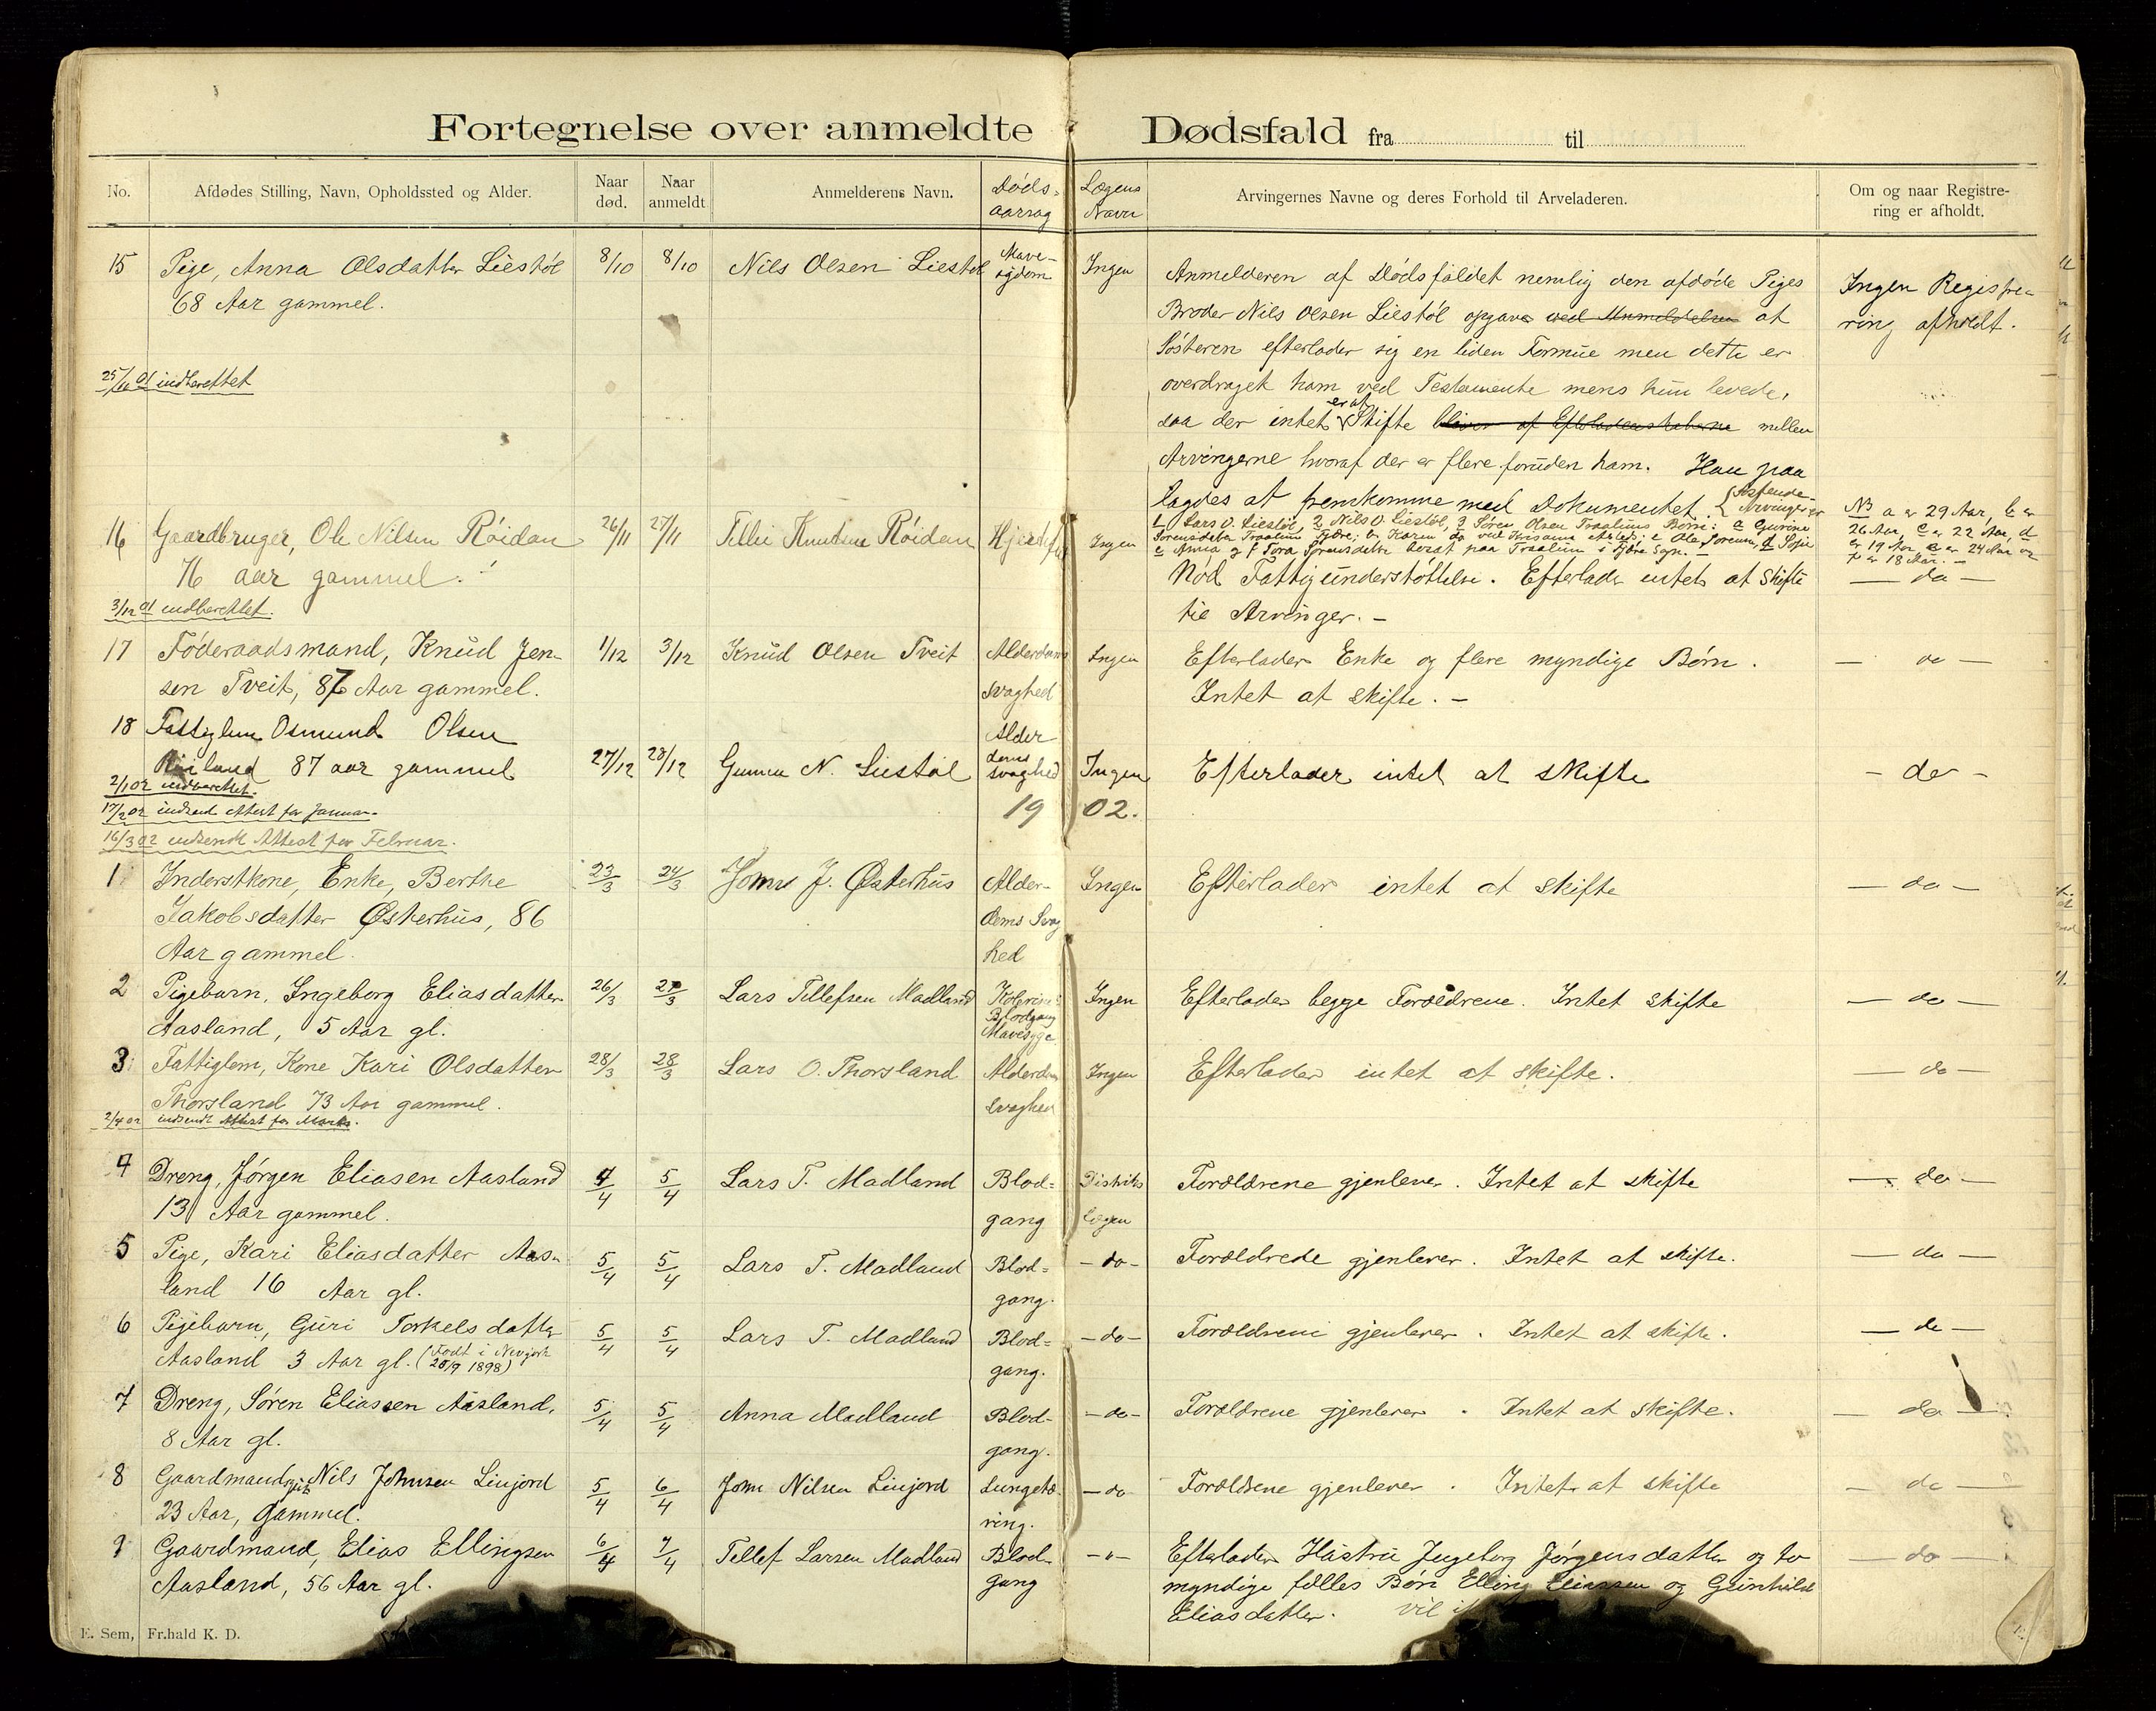 Fortegnelse over anmeldte Dødsfald fra til
No.
Afdødes Stilling, Navn, Opholdssted og Alder.
Naar død.
Naar anmeldt
Anmelderens Navn.
Døds-aarsag
Lægens Navn
Arvingernes Navne og deres Forhold til Arveladeren.
Om og naar Registre-
ring er afholdt.
15 Pige, Anna Olsdatter Liestøl 8/10 8/10 Nils Olsen Liestøl Mave-sygdom Ingen
68 Aar gammel.
Anmelderen af Dødsfaldet nemlig den afdøde Piges
Broder Nils Olsen Liestøl opgav ved Anmeldelsen at
Søsteren efterlader sig en liden Formue men dette er
overdraget ham ved Testamente mens hun levede,
saa der intet er at Skifte bliver af Efterladenskaberne mellem
Arvingerne hvoraf der er flere foruden ham. Han paa
lagdes at fremkomme med Dokumentet.
Ingen Registre-
ring afholdt.
indberettet
1 Lars O. Liestøl, 2 Nils O. Liestøl, 3 Søren Olsen Traalums Børn: a Gurine
NB a er 29 Aar, b er
26 Aar, c er 22 Aar, d
er 19 Aar e er 24 Aar og
f er 18 Aar. -
16 Gaardbruger, Ole Nilsen Röidan 26/11 27/11 Knudsen Röidan Ingen
76 aar gammel.
Nød Fattigunderstøttelse. Efterlader intet at skifte
til Arvinger. -
- do -
3/12 01 indberettet.
17 Føderaadsmand, Knud Jen- 1/12 3/12 Knud Olsen Tveit Alderdoms Ingen
sen Tveit, 87 Aar gammel. Svaghed
Efterlader Enke og flere myndige Børn.
Intet at skifte. -
- do -
18 Fattiglem Osmund Olsen
87 aar gammel 27/12 28/12 Gunnu N. Liestøl Alder doms svaghed Ingen Efterlader intet at skifte - do -
2/1 02 indberettet.
17/2 02 indsend Attest for Januar.
1902.
16/3 02 indsendt Attest for Februar.
1 Inderstkone, Enke, Berthe 23/3 24/3 J. Østerhus Alder- Ingen Efterlader intet at skifte - do -
Jakobsdatter Østerhus, 86 doms Svag
Aar gammel. hed
2 Pigebarn, Ingeborg Eliasdatter 26/3 27/3 Lars Tellefsen Madland Ingen Efterlader begge Forældrene. Intet skifte - do -
Aasland, 5 Aar gl. Blodgang Mavesyge
3 Fattiglem, Kone Kari Olsdatter 28/3 28/3 Lars O. Thorsland Alderdoms Ingen Efterlader intet at skifte. - do -
Thorsland 73 Aar gammel. svaghed
2/4 02 indsendt Attest for Marts.
4 Dreng, Jørgen Eliasen Aasland 4/4 5/4 Lars T. Madland Blod= Distrikts Forældrene gjenlever. Intet at skifte - do -
13 Aar gammel. gang lægen
5 Pige, Kari Eliasdatter Aas- 5/4 5/4 Lars T. Madland Blod= - do - Forældrede gjenlever. Intet at skifte. - do -
land 16 Aar gl. gang.
6 Pigebarn, Guri Torkelsdatter 5/4 5/4 Lars T. Madland Blod= - do - Forældrene gjenlever. Intet at skifte. - do -
Aasland 3 Aar gl. (Født i Nevyork 20/9 1898) gang.
7 Dreng, Søren Eliassen Aasland, 5/4 5/4 Anna Madland Blod- - do - Forældrene gjenlever. Intet at skifte. - do -
8 Aar gl. gang.
8 Gaardmand Nils Johnsen Linjord 5/4 6/4 John Nilsen Linjord Lungetæ- - do - Forældrene gjenlever. Intet at skifte - do -
23 Aar, gammel. ring.
9 Gaardmand, Elias Ellingsen 6/4 7/4 Tellef Larsen Madland Blod- - " - Efterlader Hustru Ingeborg Jørgensdatter og to - do -
Aasland, 56 Aar gl. gang myndige fælles Børn Elling Eliassen og Gunhild
Eliasdatter. vil
E. Sem, Fr.hald K. D.